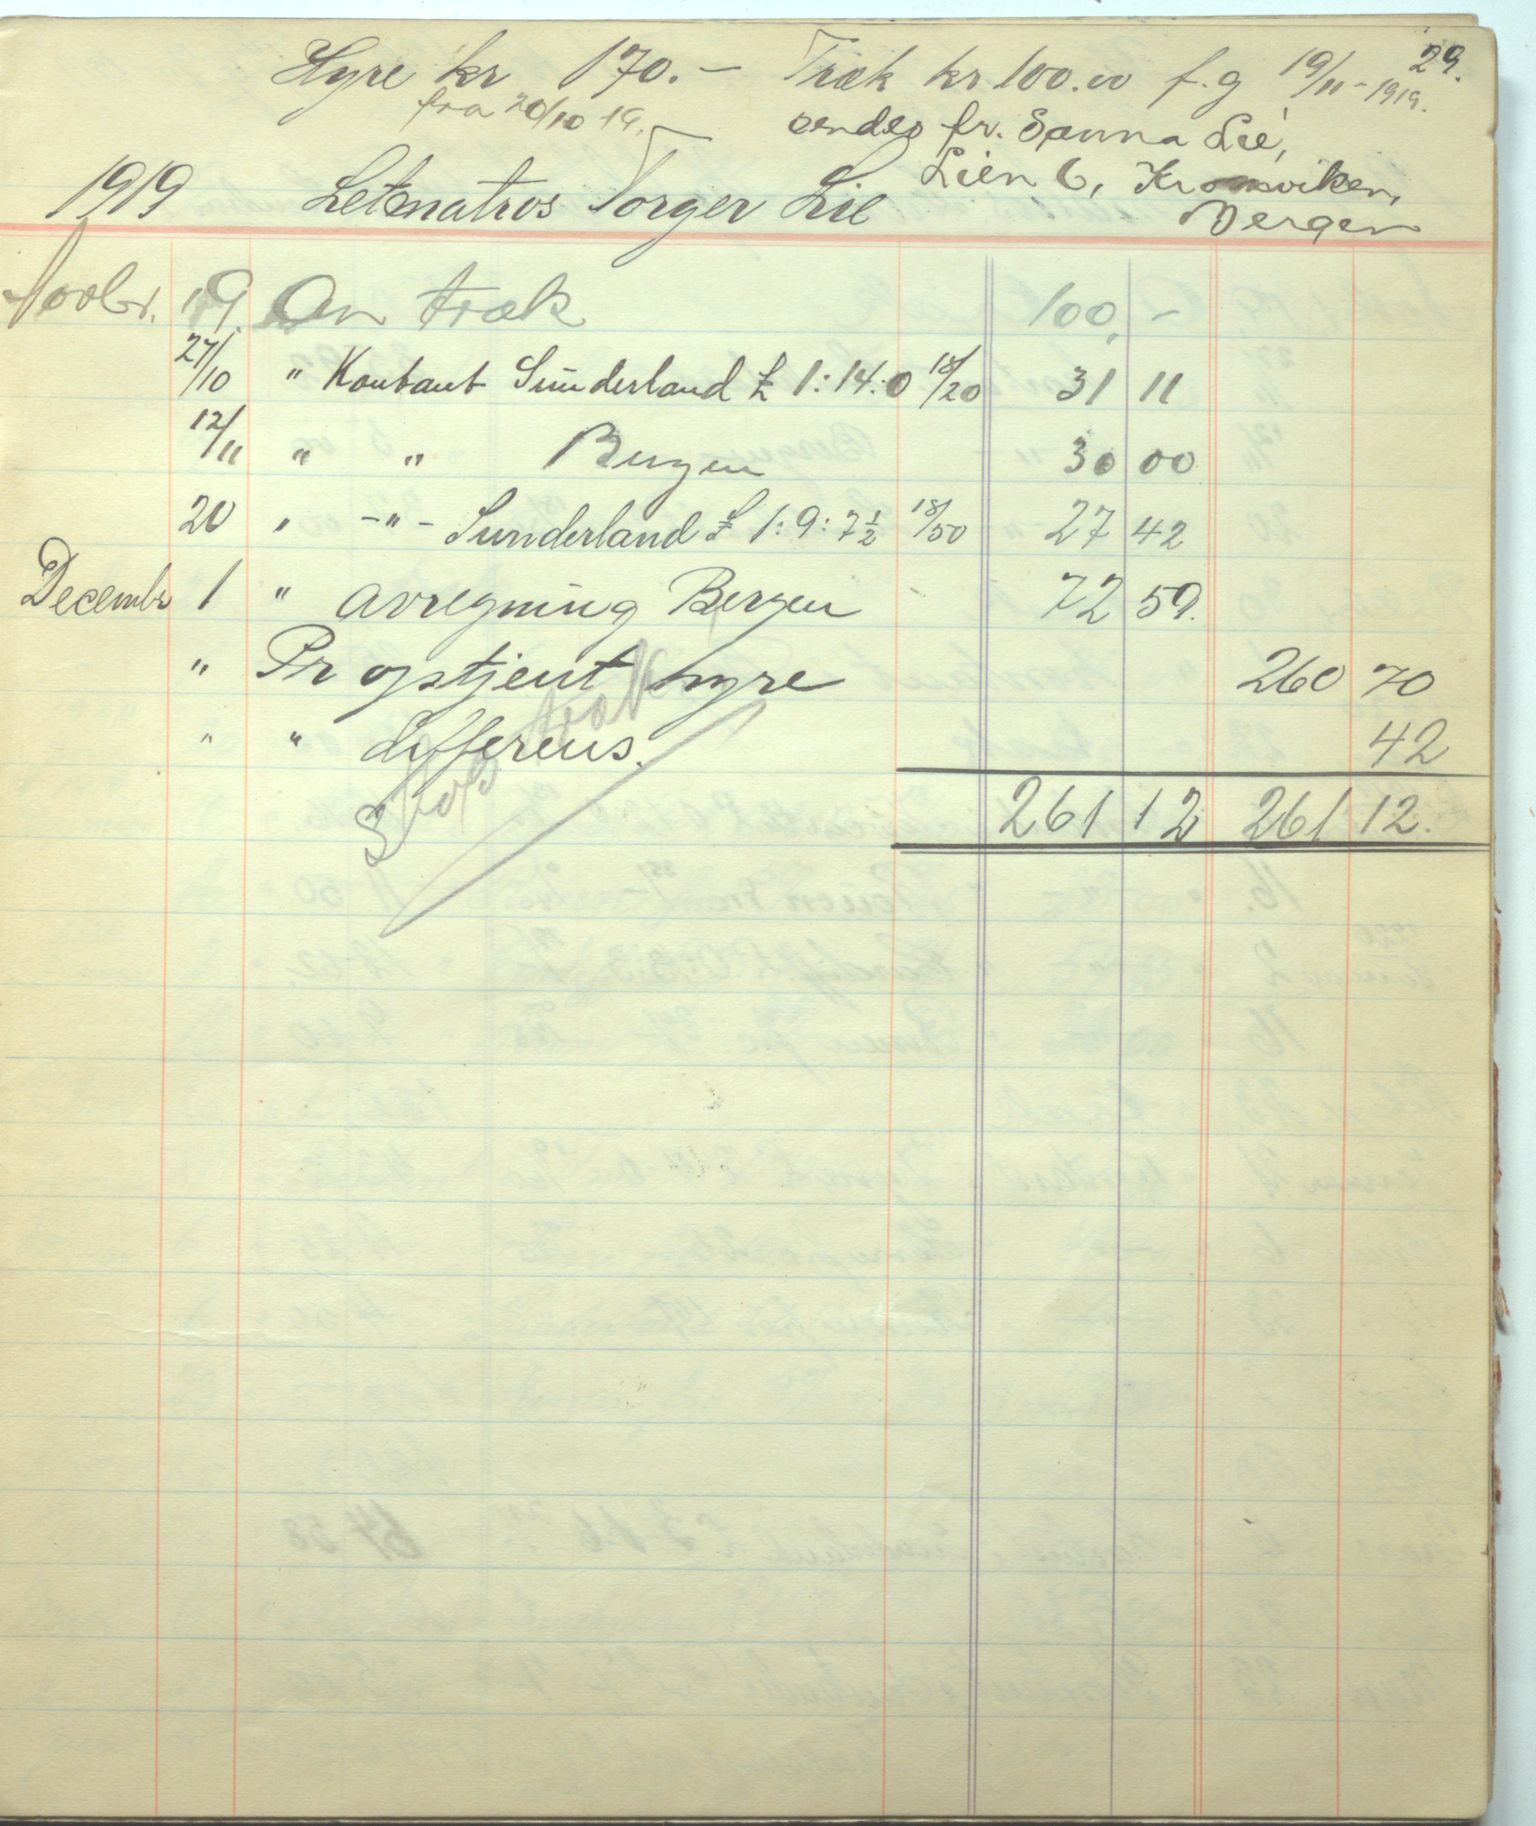 29.
Hyre kr 170.— Træk kr. 100.00 f. g 19/11-1919.
fra 20/10 19. sendes fr. Sanna Lie,
Lien 6, Kronviken,
1919 Letmatros Torger Lie Bergen
Novbr. 19. An træk 100,-
27/10 " Kontant Sunderland £ 1:14:0 18/20 31 11
12/11 " " Bergen 30 00
20 " -"- Sunderland £ 1:9:7½ 18/50 27 42
Decembr 1 " avregning Bergen 72 59.
" Pr opstjent hyre 260 70
" " differens. 42
Stop træk
261 12 261 12.